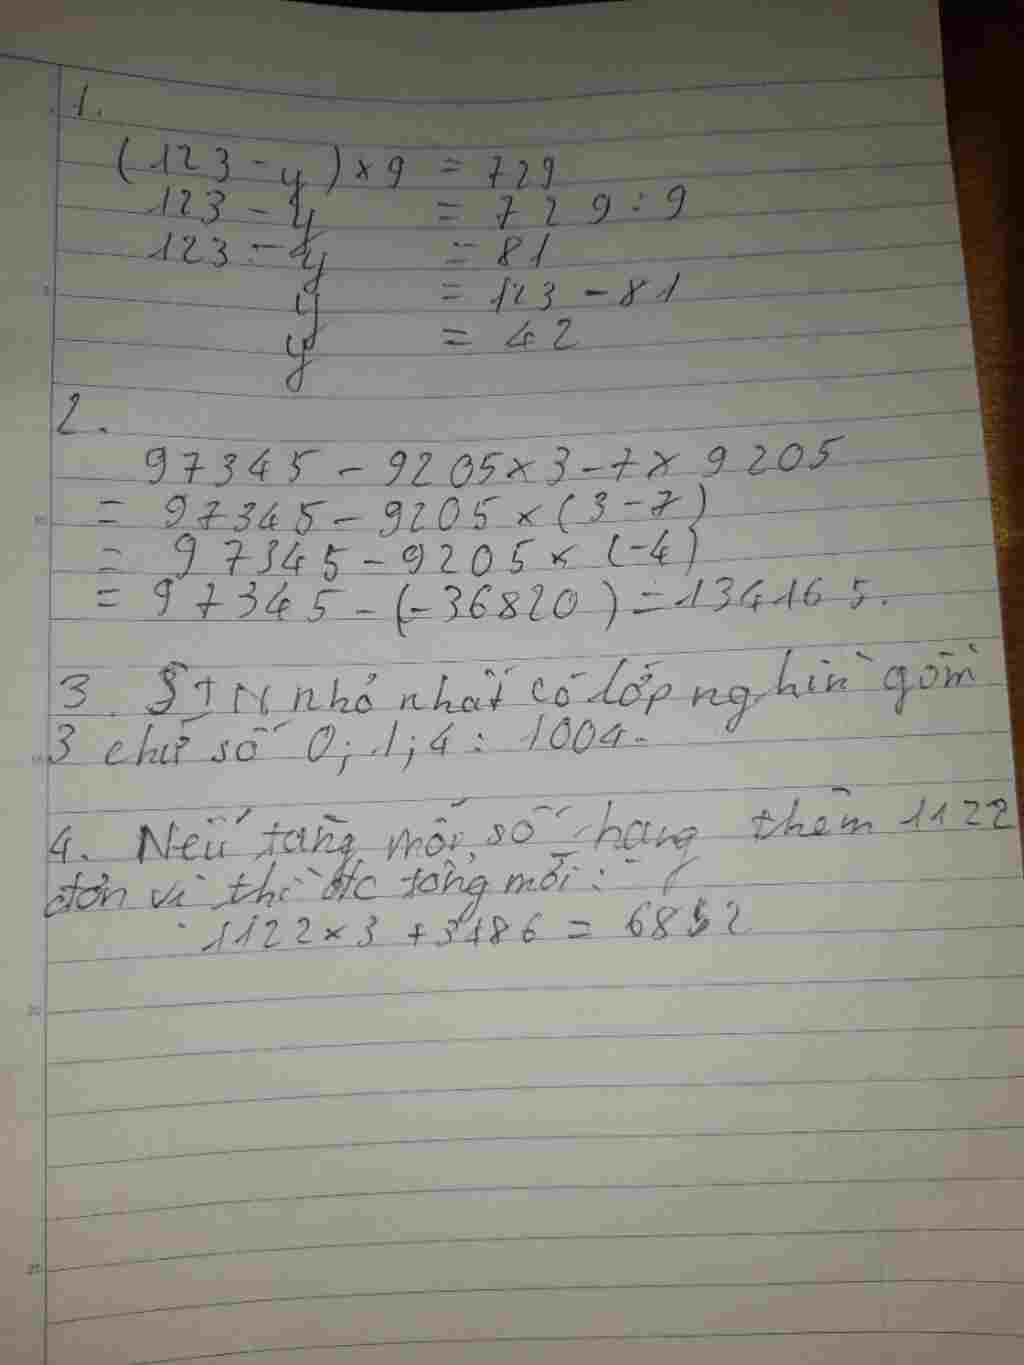 1.
(123 - y) × 9 = 729
123 - y = 729 : 9
123 - y = 81
y = 123 - 81
y = 42
2.
97345 - 9205 × 3 - 7 × 9205
= 97345 - 9205 × (3 - 7)
= 97345 - 9205 × (-4)
= 97345 - (-36820) = 134165.
3. STN nhỏ nhất có lớp nghìn gồm
3 chữ số 0; 1; 4 : 1004.
4. Nếu tăng mỗi số hạng thêm 1122
đơn vì thì đc tổng mới :
1122 × 3 + 3486 = 6852